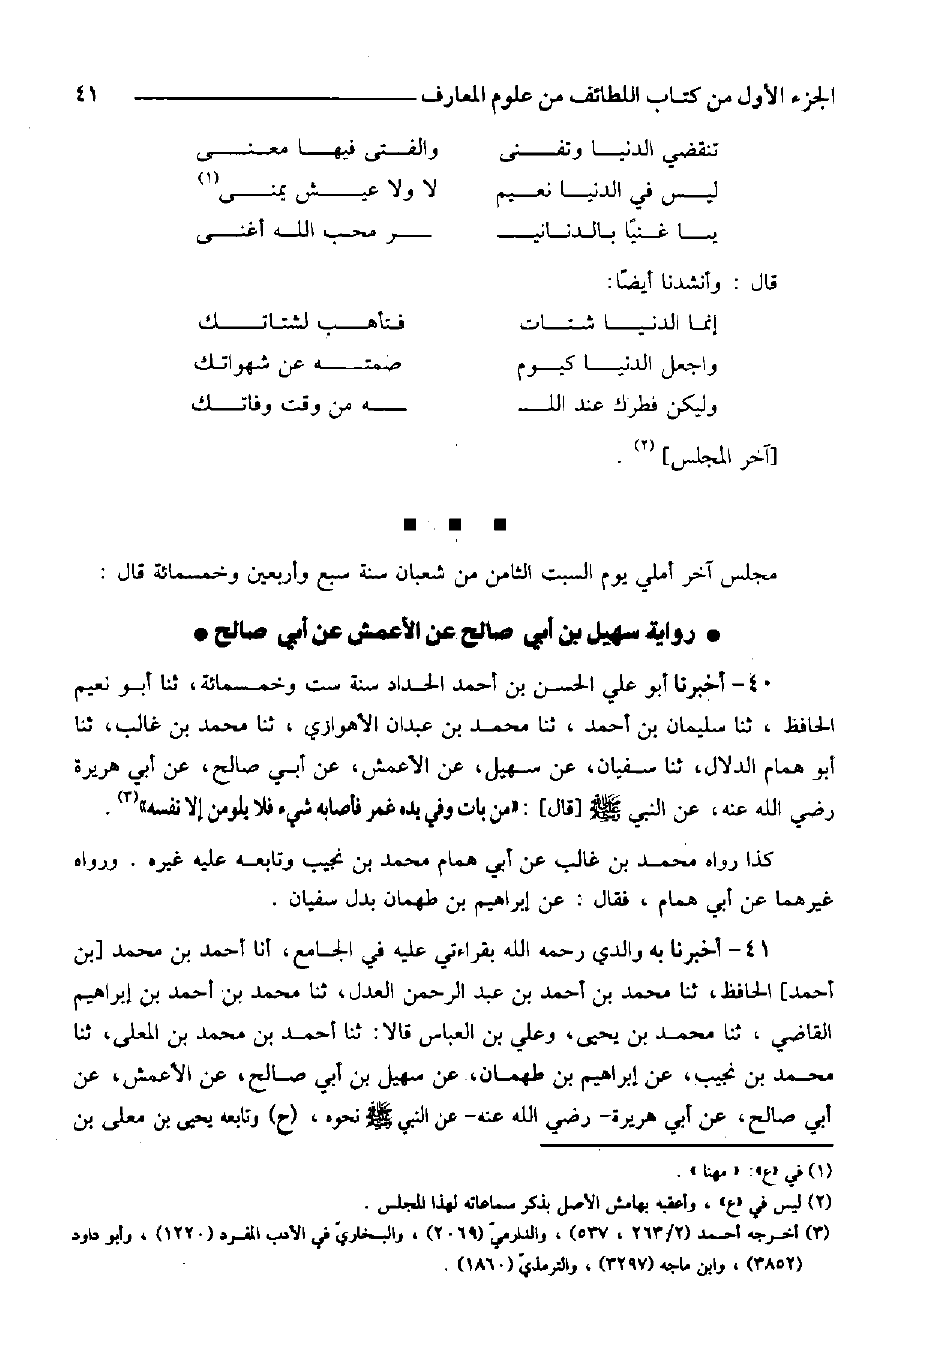 الجزء الأول من كتاب اللطائف من علوم المعارف ٤١
تنقضي الدنيا وتفنى والفتى فيها معنى
ليس في الدنيا نعيم لا ولا عيش يمنى(١)
يا غنيًا بالدنانيـ ـر محب الله أغنى
قال : وأنشدنا أيضًا:
إنما الدنيا شتات فتأهب لشتاتك
واجعل الدنيا كيوم صمته عن شهواتك
وليكن فطرك عند اللـ ـه من وقت وفاتك
[آخر المجلس] (٢) .
مجلس آخر أملي يوم السبت الثامن من شعبان سنة سبع وأربعين وخمسمائة قال :
● رواية سهيل بن أبي صالح عن الأعمش عن أبي صالح ●
٤٠- أخبرنا أبو علي الحسن بن أحمد الحداد سنة ست وخمسمائة، ثنا أبو نعيم
الحافظ ، ثنا سليمان بن أحمد ، ثنا محمد بن عبدان الأهوازي ، ثنا محمد بن غالب، ثنا
أبو همام الدلال، ثنا سفيان، عن سهيل، عن الأعمش، عن أبي صالح، عن أبي هريرة
رضي الله عنه، عن النبي ﷺ [قال] : «من بات وفي يده غمر فأصابه شيء فلا يلومن إلا نفسه»(٣) .
كذا رواه محمد بن غالب عن أبي همام محمد بن نجيب وتابعه عليه غيره . ورواه
غيرهما عن أبي همام ، فقال : عن إبراهيم بن طهمان بدل سفيان .
٤١- أخبرنا به والدي رحمه الله بقراءتي عليه في الجامع، أنا أحمد بن محمد [بن
أحمد] الحافظ، ثنا محمد بن أحمد بن عبد الرحمن العدل، ثنا محمد بن أحمد بن إبراهيم
القاضي ، ثنا محمد بن يحيى، وعلي بن العباس قالا: ثنا أحمد بن محمد بن المعلى، ثنا
محمد بن نجيب، عن إبراهيم بن طهمان، عن سهيل بن أبي صالح، عن الأعمش، عن
أبي صالح، عن أبي هريرة- رضي الله عنه- عن النبي ﷺ نحوه ، (ح) وتابعه يحيى بن معلى بن
(١) في «ع»: « مهنا » .
(٢) ليس في «ع» ، وأعقبه بهامش الأصل بذكر سماعاته لهذا المجلس .
(٣) أخرجه أحمد (٢/ ٢٦٣ ، ٥٣٧) ، والدارميّ (٢٠٦٩) ، والبخاريّ في الأدب المفرد (١٢٢٠) ، وأبو داود
(٣٨٥٢) ، وابن ماجه (٣٢٩٧) ، والترمذيّ (١٨٦٠) .